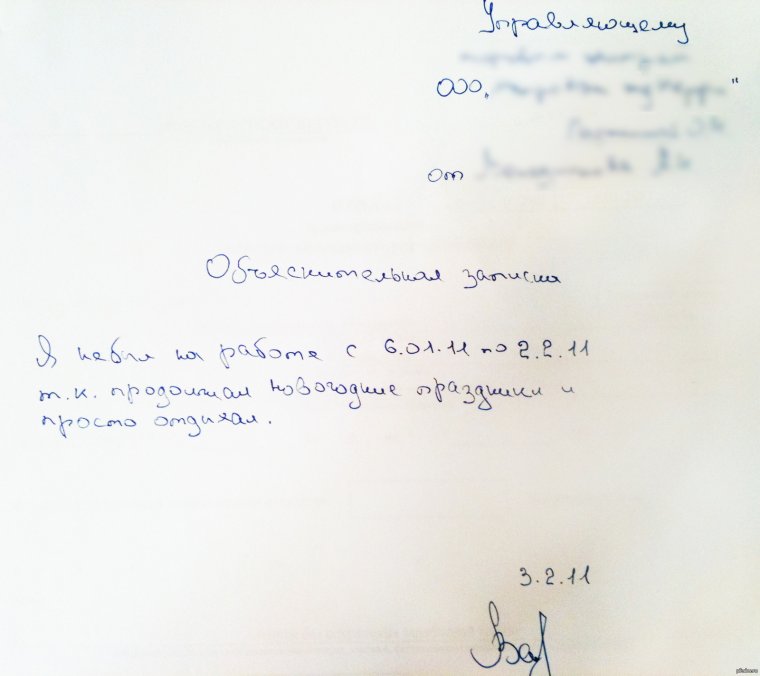 Управляющему
ООО „ "
от
Объяснительная записка
Я небыл на работе с 6.01.11 по 2.2.11
т.к. продолжал новогодние праздники и
просто отдихал.
3.2.11
pikabu.ru